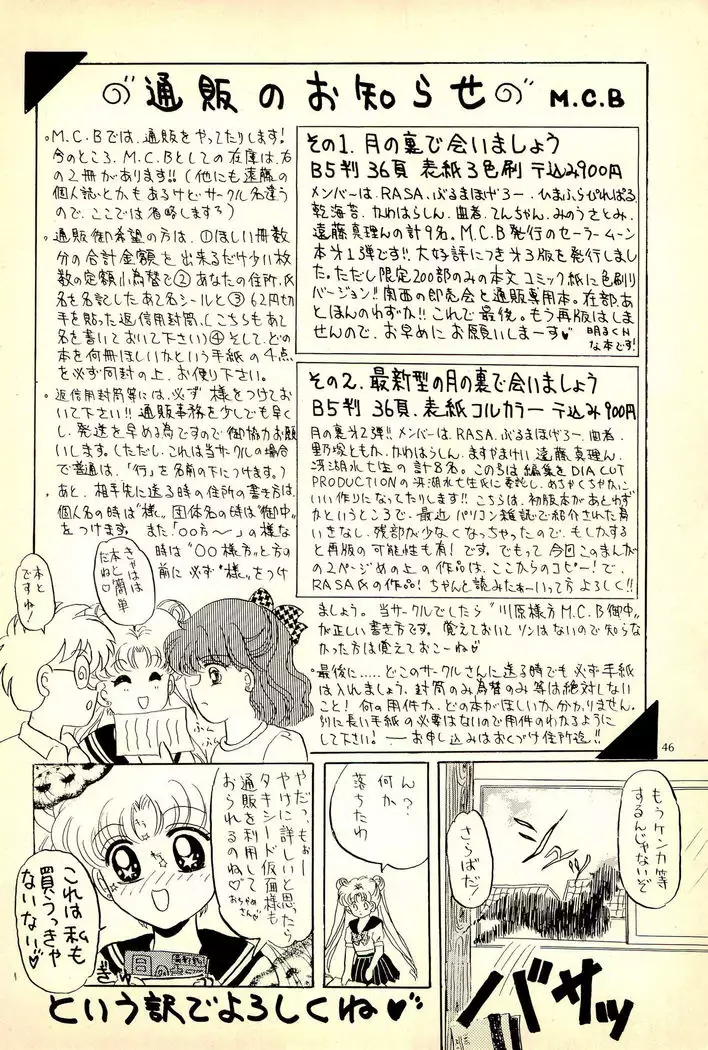 通販のお知らせ M.C.B
。M.C.Bでは、通販をやってたりします!
今のところ、M.C.Bとしての在庫は、右
の2冊があります!!(他にも遠藤の
個人誌とかもあるけどサークル名違う
ので、ここでは省略しますう)
。通販御希望の方は、①ほしい冊数
分の合計金額を出来るだけ少い枚
数の定額小為替で②あなたの住所、氏
名を名記したあて名シールと③62円切
手を貼った返信用封筒、(こちらもあて
名を書いておいて下さい)④そして、どの
本を何冊ほしいかという手紙の4点
を必ず同封の上、お便り下さい。
。返信用封筒等には、必ず"様"をつけてお
いて下さい!!通販事務を少しでも早く
し、発送を早める為ですので御協力お願
いします。(ただし、これは当サークルの場合
で普通は、「行」を名前の下につけます。)
。あと、相手先に送る時の住所の書き方は、
個人名の時は"様"、団体名の時は"御中"
をつけます。また「〇〇方〜」の様な
時は"〇〇様方"と方の
前に必ず"様"をつけ
その1. 月の裏で会いましょう
B5判 36頁 表紙3色刷 〒込み900円
メンバーは、RASA、ぶるまほげろー、ひまふらぴれぱる、
乾海苔、かわはらしん、由君、てんちゃん、みのうさとみ、
遠藤真理んの計9名。M.C.B発行のセーラームーン
本第1弾です!!大好評につき第3版を発行しまし
た。ただし限定200部のみの本文コミック紙に色刷り
バージョン!!関西の即売会と通販専用本。在部、あ
とほんのわずか!!これで最後。もう再版はしま
せんので、お早めにお願いしまーす♡
明るくH
な本です!
その2. 最新型の月の裏で会いましょう
B5判 36頁、表紙フルカラー 〒込み900円
月の裏第2弾!!メンバーは、RASA、ぶるまほげろー、由君、
里乃塚ともか、かわはらしん、ますやまけい、遠藤真理ん、
冴湖水七生の計8名。この号は編集をDIA CUT
PRODUCTIONの冴湖水七生氏に委託し、めちゃくちゃか、こ
いい作りになってたりします!!こちらは、初版本があとわず
かというところで、最近パソコン雑誌で紹介された為、
いきなし、残部が少なくなっちゃったので、もしかする
と再版の可能性も有!です。でもって今回このまんが
の2ページめの上の作品は、ここからのコピー!で、
RASA氏の作品!ちゃんと読みたぁーいって方よろしく!!
ましょう。当サークルでしたら"川原様方M.C.B御中"
が正しい書き方です。覚えておいてソンはないので知らな
かった方は覚えておこーね♡
。最後に……どこのサークルさんに送る時でも必ず手紙
は入れましょう。封筒のみ為替のみ等は絶対しない
こと!何の用件か、どの本がほしいか分かりません。
別に長い手紙の必要はないので用件のわかるように
して下さい!――お申し込みはおくづけ住所迄!!
46
きゃはは
本と簡単
だね♡
本と
ですね!
ふんふん
もうケンカ等
するんじゃないぞ
さらばだ!
バサッ
ん?
何か
落ちたわ
やだっ、もぉー
やけに詳しいと思ったら
タキシード仮面様も
通販を利用して
おられるのね♡
おちゃめさん♡
これは私も
買うっきゃ
ないない♡
最新型
月の
ぎゅ
という訳でよろしくね♡